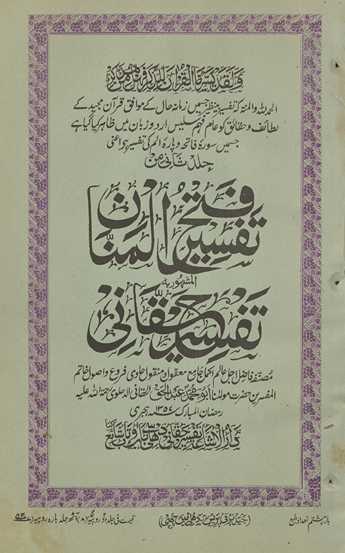 ولقد یسرنا القرآن للذکر فهل من مدکر
الحمد للہ والمنہ کہ تفسیر بے نظیر جس میں زمانہ حال کے موافق قرآن مجید کے
لطائف و حقائق کو عام فہم سلیس اردو زبان میں ظاہر کیا گیا ہے
جس میں سورۂ فاتحہ و پارہ الم کی تفسیر ہے
جلد ثانی من
تفسیر فتح المنان
المشہور بہ
تفسیر حقانی
مصنفہ فاضل اجل عالم اکمل جامع معقول و منقول حاوی فروع و اصول خاتم
المفسرین حضرت مولانا ابو محمد عبد الحق الحقانی الدہلوی رحمۃ اللہ علیہ
رمضان المبارک ۱۳۵۶ ہجری
دار الاشاعت تفسیر حقانی دہلی
بار ہشتم تعداد طبع
قیمت فی جلد